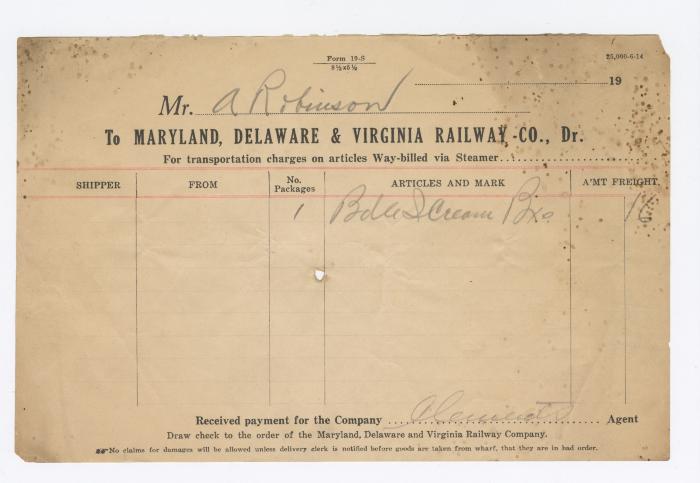 Form 19-S
8½x5½
25,000-6-14
19
Mr. A Robinson
To MARYLAND, DELAWARE & VIRGINIA RAILWAY CO., Dr.
For transportation charges on articles Way-billed via Steamer
SHIPPER FROM No. Packages ARTICLES AND MARK A'MT FREIGHT
1 Bdle I Cream Bxs 16
Received payment for the Company Clements Agent
Draw check to the order of the Maryland, Delaware and Virginia Railway Company.
No claims for damages will be allowed unless delivery clerk is notified before goods are taken from wharf, that they are in bad order.